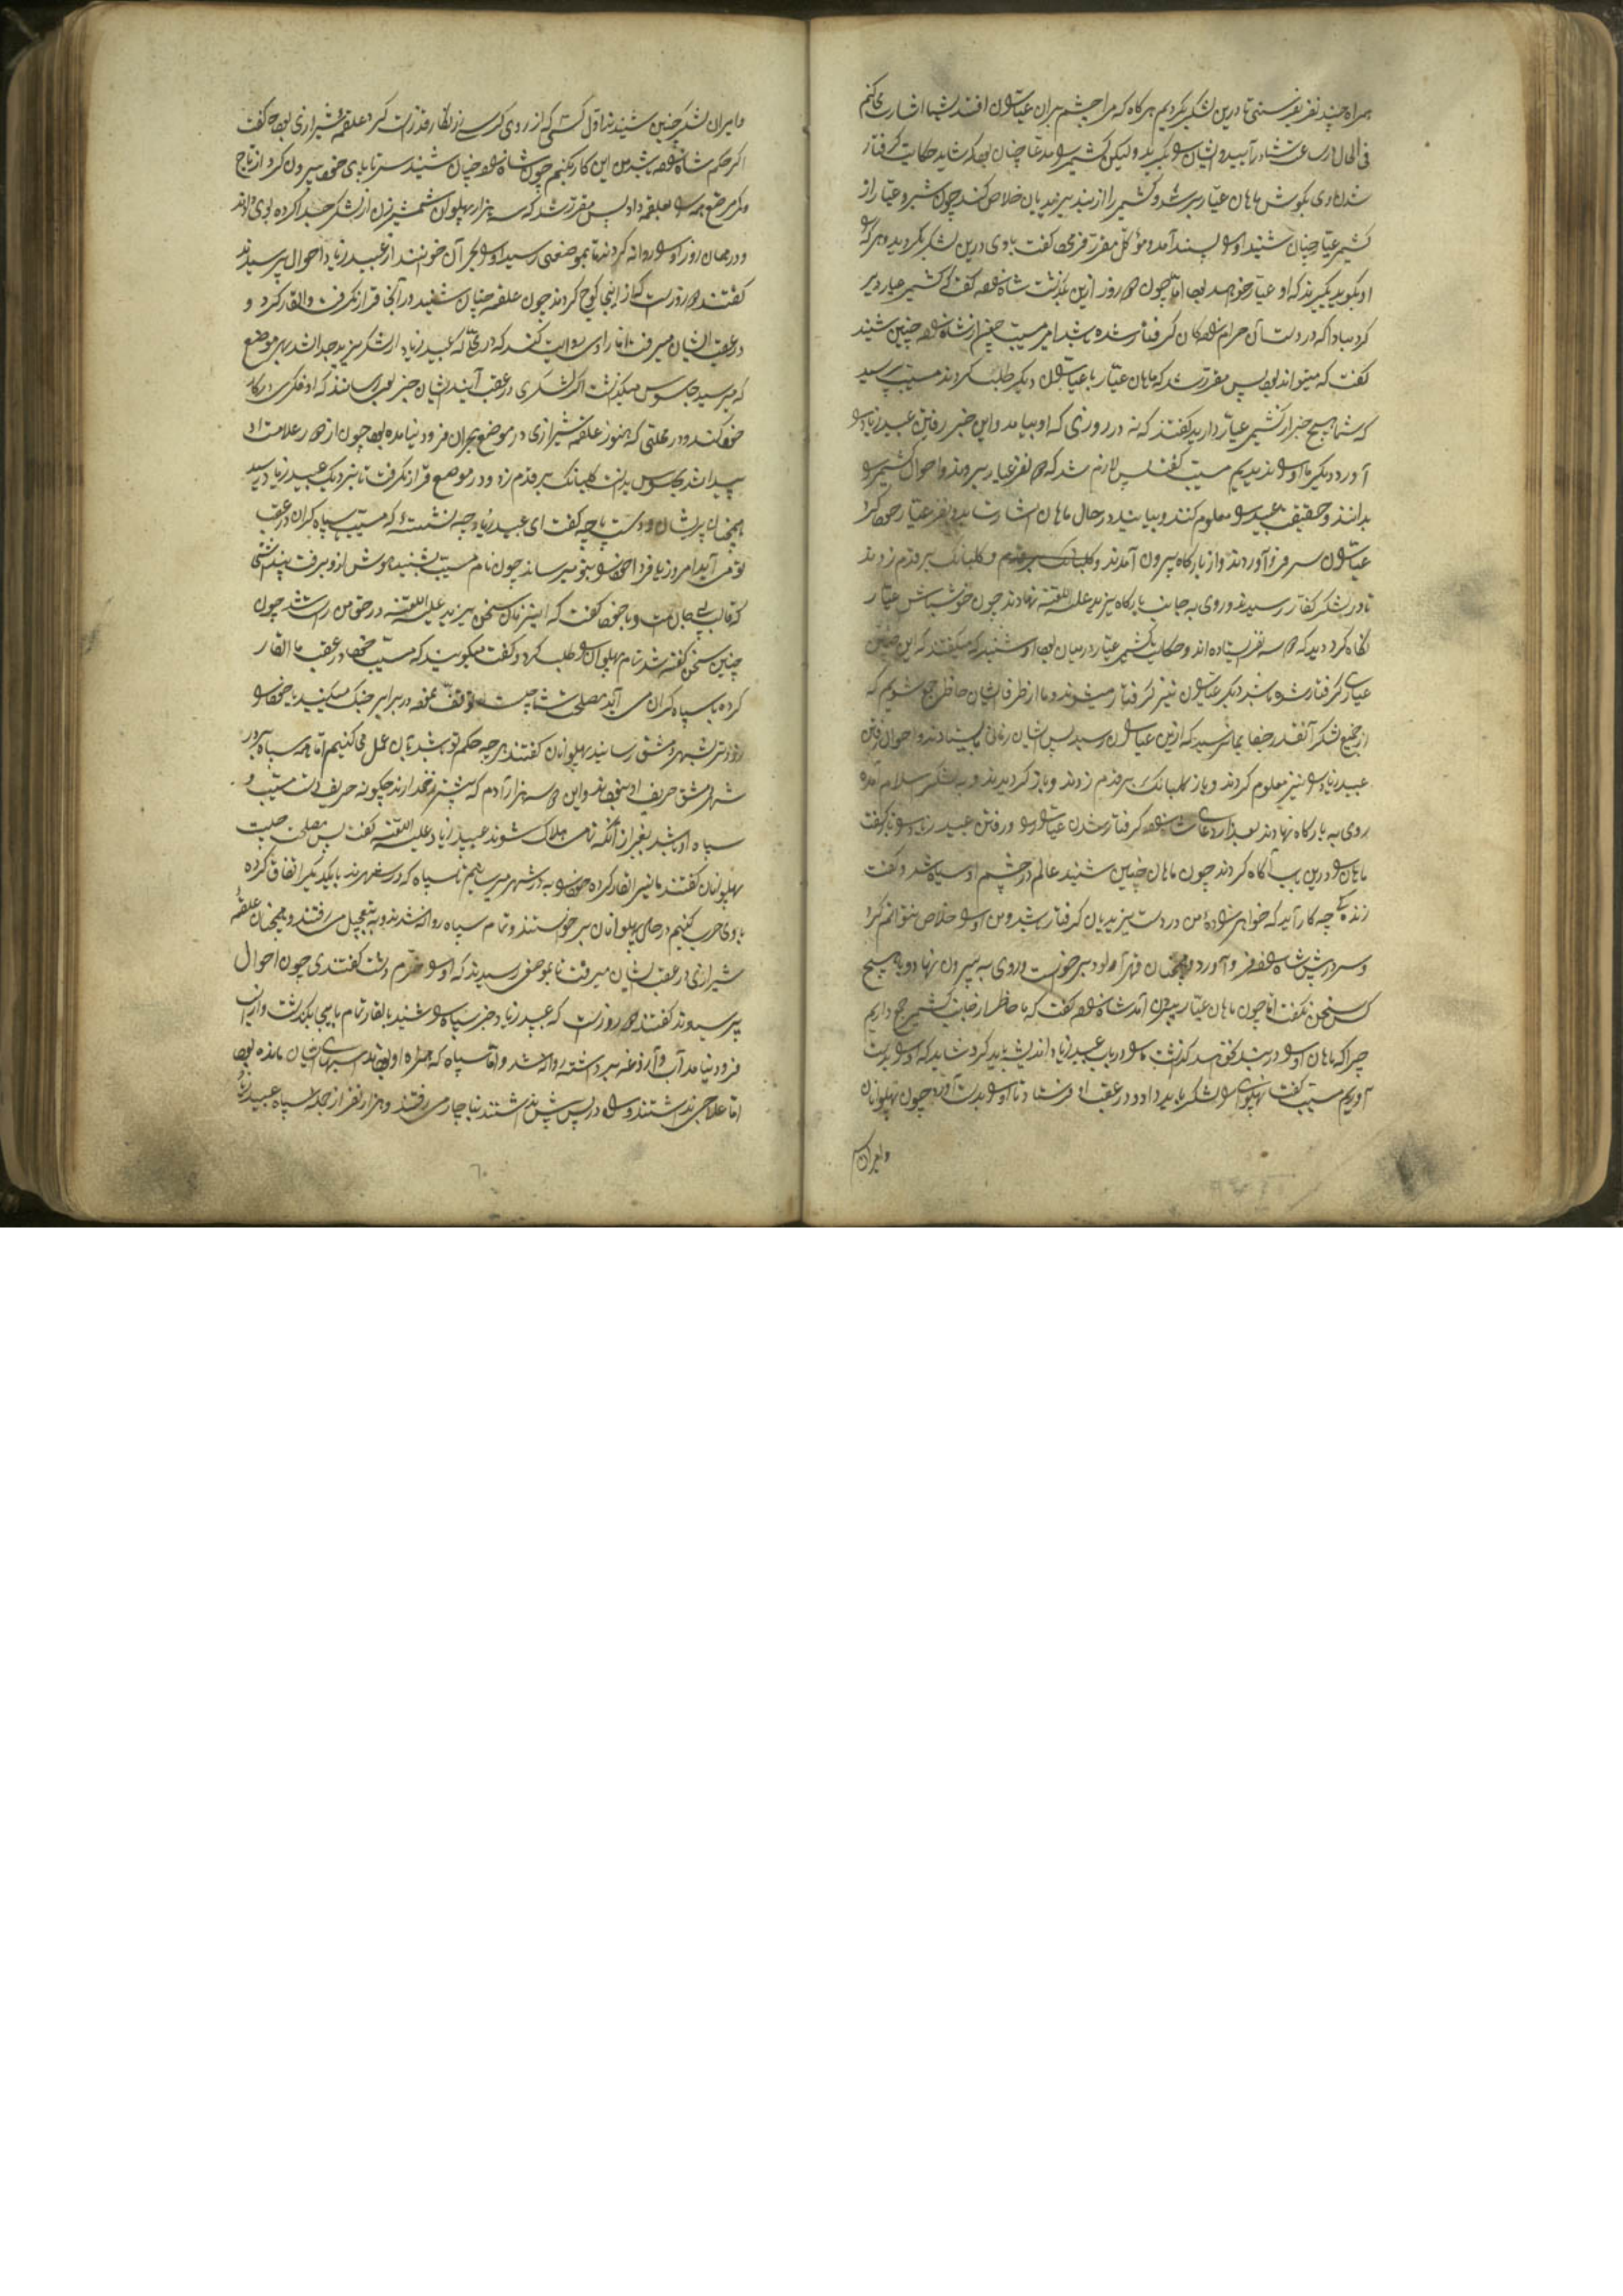 همراه چند نفر بفرستی تا درین لشکر بگردیم هرگاه که مرا چشم بران عیاران افتد بشما اشارت میکنم
فی الحال در ساعت شما درآیید و ایشانرا بگیرید ولیکن کشمیر را مدعا چنان بود که شاید حکایت گرفتار
شدن او بگوش ماهان عیار برسد و کشمیر را از بند یزیدیان خلاص کند چون شیرو عیار از
کشمیر عیار چنان شنید او را پسند آمد و موکل مقرر فرمود گفت با وی درین لشکر بگردید و هر که را
او بگوید بگیرید که او عیار خواهد بود اما چون دو روز ازین بگذشت شاه فرمود گفت که کشمیر عیار دیر
کرد مبادا که در دست آن حرامزادگان گرفتار شده باشد امیر مسیب چون از شاه چنین شنید
گفت که میتواند بود پس مقرر شد که ماهان عیار با عیاران دیگر طلب کردند مسیب پرسید
که شما هیچ خبر از کشمیر عیار دارید گفتند که نه در روزی که او بیامد و این خبر رفتن عبید زیاد را
آورد دیگر ما او را ندیدیم مسیب گفت پس لازم شد که دو نفر عیار بروند و احوال کشمیر را
بدانند و حقیقت عبید را معلوم کنند و بیایند در حال ماهان اشارت بدو نفر عیار خود کرد
عیاران سر فرو آوردند و از بارگاه بیرون آمدند و گلبانک بر قدم زدند
تا در لشکر کفار رسیدند و روی به جانب بارگاه یزید علیه اللعنة نهادند چون خوش باش عیار
نگاه کرد دید که دو سه نفر ایستاده اند و حکایت کشمیر عیار در میان بود او شنید که میگفتند که این چنین
عیاری گرفتار شد باشد دیگر عیاران نیز گرفتار میشوند و ما از طرف ایشان خاطر جمع شویم که
از جمیع لشکر آنقدر جفا بما نرسید که ازین عیاران رسید پس ایشان زمانی بایستادند و احوال رفتن
عبید زیاد را نیز معلوم کردند و باز گلبانک بر قدم زدند و باز گردیدند و به لشکر اسلام آمده
روی به بارگاه نهادند بعد از دعای شاه گرفتار شدن عیار را و رفتن عبید زیاد را باز گفت
ماهان را درین باب آگاه کردند چون ماهان چنین شنید عالم در چشم او سیاه شد و گفت
زندگی چه کار آید که خواهرزاده من در دست یزیدیان گرفتار باشد و من او را خلاص نتوانم کرد
و سر در پیش شاه فرو آورد و همچنان قهر آلود برخواست و روی به بیرون نهاد و با هیچ
کس سخن نگفت اما چون ماهان عیار بیرون آمد شاه گفت که ما خاطر از جانب کشمیر جمع داریم
چرا که ماهان او را در بند نخواهد گذاشت ما را در باب عبید زیاد اندیشه باید کرد شاید که او را بدست
آوریم مسیب گفت پهلوانی را لشکر باید داد و در عقب او فرستاد تا او را بدست آورد چون پهلوانان
و امیران
و امیران لشکر چنین شنیدند اول کسی که از روی کرسی زرنگار قد راست کرد علقمه شیرازی بود گفت
اگر حکم شاه باشد من این کار بکنم چون شاه چنان شنید سر تا پای خود بیرون کرد از تاج
و کمر مرصع همه را به علقمه داد پس مقرر شد که سه هزار پهلوان شمشیرزن از لشکر جدا کرده بوی دادند
و در همان روز او را روانه کردند تا بموضعی رسید که او را بحر آن خوانند از عبید زیاد احوال پرسیدند
گفتند دو روز است که از اینجا کوچ کردند چون علقمه چنان شنید در آنجا قرار نگرفت و القار کرد و
در عقب ایشان میرفت اما راوی روایت کند که در محلی که عبید زیاد از لشکر یزید جدا شد بهر موضع
که میرسید جاسوس میگذاشت اگر لشکری در عقب آید ایشان خبر بوی رسانند که او فکری در کار
خود کند و در محلتی که هنوز علقمه شیرازی در موضع بحران فرود نیامده بود چون از دور علامت او
پیدا شد جاسوس بدانست گلبانک بر قدم زد و در موضع قرار نگرفت تا بنزدیک عبید زیاد رسید
همچنان پریشان و دست پاچه گفت ای عبید زیاد چه نشسته که مسیب با سپاه گران در عقب
تو می آید امروز یا فردا خود را بتو میرساند چون نام مسیب بشنید هوش ازو برفت پنداشتی
که قالب بی جان است و با خود گفت که این زمان سخن یزید علیه اللعنة در حق من راست شد چون
چنین سخن گفته شد تمام پهلوانان را طلب کرد و گفت میگویند که مسیب خود در عقب ما القار
کرده با سپاه گران می آید مصلحت شما چیست توقف نموده در برابر جنگ میکنید یا خود را
زودتر بشهر دمشق رسانید پهلوانان گفتند هر چه حکم تو باشد بآن عمل می کنیم اما همه سپاه بر در
شهر دمشق حریف او نبودند و این دو سه هزار آدم که بیشتر زخم دارند چگونه حریف دست مسیب و
سپاه او باشد بغیر از آنکه تمامی هلاک شوند عبید زیاد علیه اللعنة گفت پس مصلحت چیست
پهلوانان گفتند ما نیز القار کرده خود را به در شهر میرسانیم تا سپاه که در شهرند با یکدیگر اتفاق کرده
با وی حرب کنیم در حال پهلوانان برخواستند و تمام سپاه روانه شدند و به تعجیل می رفتند و همچنان علقمه
شیرازی در عقب ایشان میرفت تا بموضعی رسیدند که او را خرم دشت گفتندی چون احوال
پرسیدند گفتند دو روز است که عبید زیاد خبر سپاه را شنید بالقار تمام بگذشت و از آن
فرود نیامد آب و آذوغه برداشته روانه شد و اما سپاه که همراه او بودند اسبهای ایشان مانده بود
اما علاجی نداشتند و راه در پس و پیش نداشتند بناچار می رفتند و هزار نفر از جمله سپاه عبید زیاد
٦٠